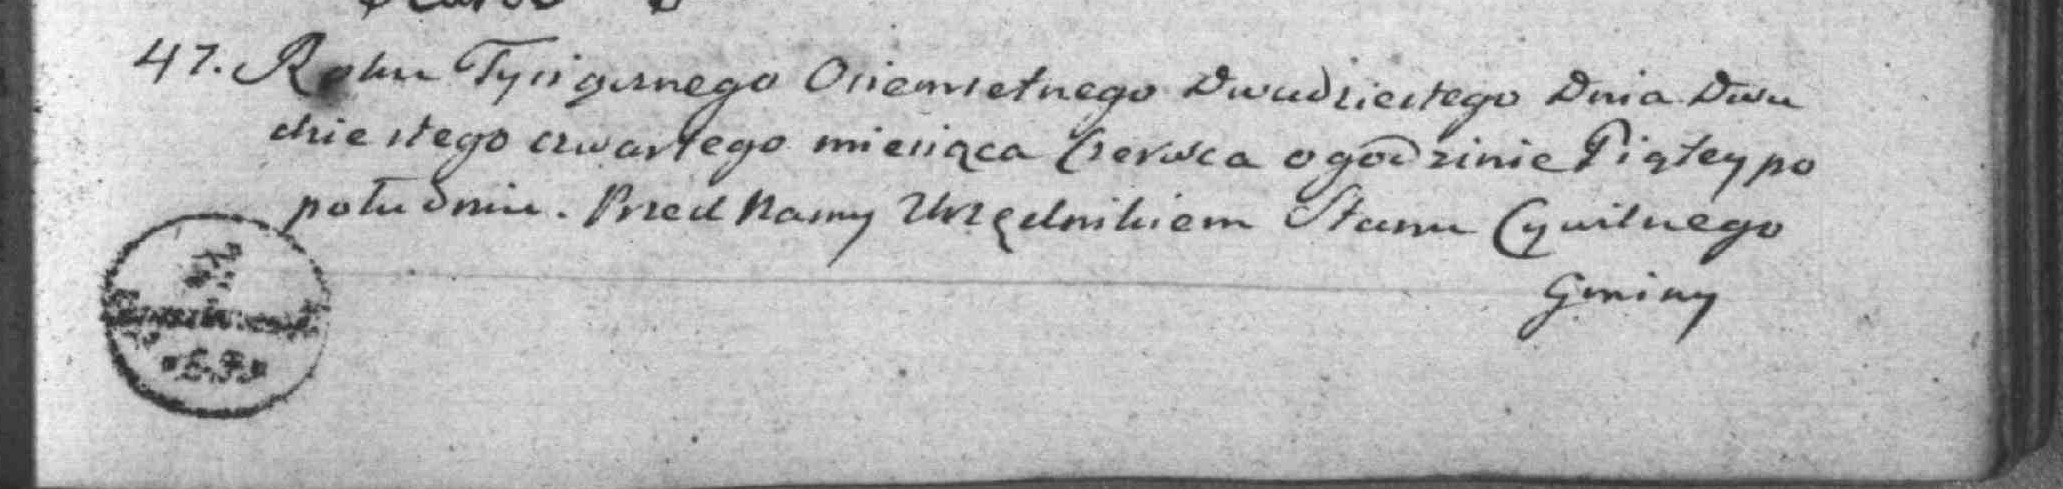 47. Roku Tysiącznego Osiemsetnego Dwudziestego Dnia Dwu
dziestego czwartego miesiąca Czerwca o godzinie Piątey po
południu. Przed Namy Urzędnikiem Stanu Cywilnego
Gminy